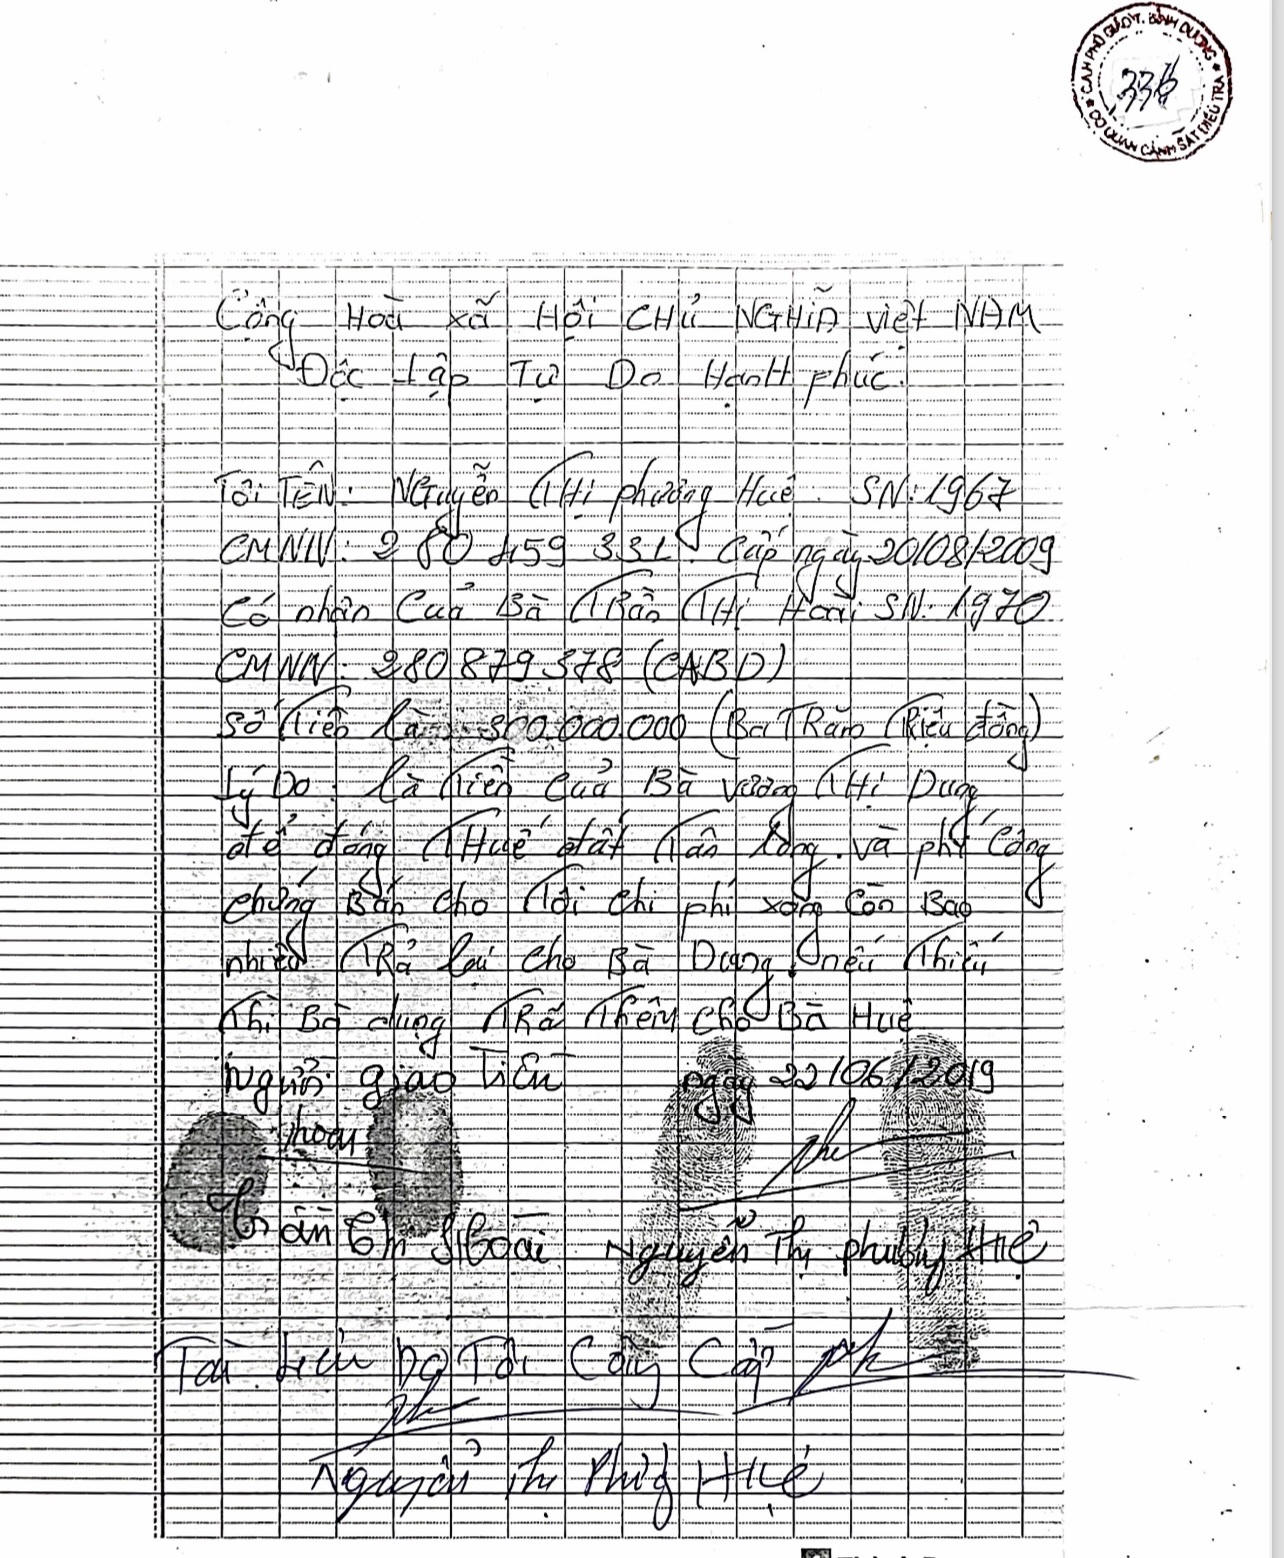 CAH PHÚ GIÁO T. BÌNH DƯƠNG
CƠ QUAN CẢNH SÁT ĐIỀU TRA
336
Cộng Hoà xã Hội CHủ NGHĨA việt NAM
Độc lập Tự Do HạnH phúc.
Tôi TÊN: NGuyễn THị phượng Huệ. SN: 1967
CMNN: 280 459 331. Cấp ngày 20/08/2009
Có nhận Của Bà TRần THị Hoài SN: 1970
CMNN: 280 879 378 (CABD)
Số Tiền là: 300.000.000 (Ba TRăm TRiệu đồng)
Lý Do: là Tiền Của Bà vương THị Dung
để đóng THuế đất Tân Long. và phí Công
chứng Bán cho Tôi chi phí xong Còn Bao
nhiêu TRả lại cho Bà Dung. nếu Thiếu
Thì Bà dung TRả Thêm cho Bà Huệ
Người giao Tiền ngày 22/06/2019
hoài
Trần Thị Hoài Nguyễn Thị phượng Huệ
Tài Liệu Do Tôi Cung Cấp
Nguyễn Thị Phượng Huệ